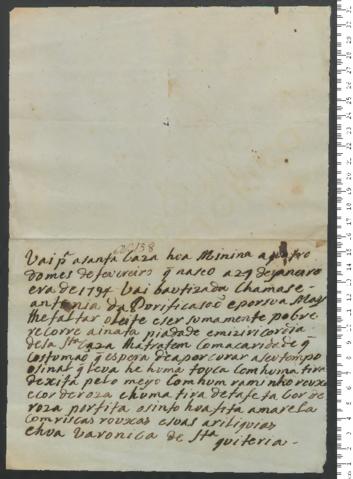 138
Vai pª a santa Caza hũa Minina a quatro
do mes de fevereiro q naseo a 29 de janeiro
era de 1794 Vai bautizada chamase
antonia da Purificasaõ e por sua May
lhe faltar o leite e ser sumamente pobre
recorre a inata piadade e mizericordia
desta Stª Caza lha tratem com a caridade q
costumaõ q espera de a porcurar a seu tempo
o sinal q leva he huma touca com huma tira
de xita pelo meyo com hum raminho rouxo
e cor de roza e huma tira de tafeta Cor de
roza por fita o sinto hũa fita amarela
com riscas rouxas e suas ariliquias
e hũa varonica de Stª
quiteria -